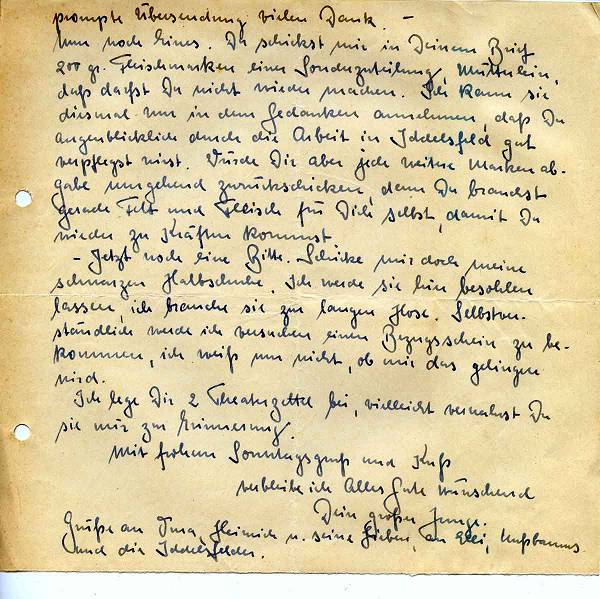 prompte Übersendung vielen Dank. –
Nun noch Eines. Du schickst mir in Deinem Brief
200 gr. Fleischmarken einer Sonderzuteilung, Mütterlein,
daß darfst Du nicht wieder machen. Ich kann sie
diesmal nur in dem Gedanken annehmen, daß Du
augenblicklich durch die Arbeit in Iddelsfeld gut
verpflegt wirst. Würde Dir aber jede weitere Markenab-
gabe umgehend zurückschicken, denn Du brauchst
gerade Fett und Fleisch für Dich selbst, damit Du
wieder zu Kräften kommst.
– Jetzt noch eine Bitte. Schicke mir doch meine
schwarzen Halbschuhe. Ich werde sie hier besohlen
lassen, ich brauche sie zur langen Hose. Selbstver-
ständlich werde ich versuchen einen Bezugsschein zu be-
kommen, ich weiß nur nicht, ob mir das gelingen
wird.
Ich lege Dir 2 Theaterzettel bei, vielleicht verwahrst Du
sie mir zur Erinnerung.
Mit frohem Sonntagsgruß und Kuß
verbleibe ich Alles Gute wünschend
Dein großer Junge.
Grüße an Oma, Heinrich u. seine Lieben, an Elli, Nußbaums
und die Iddelsfelder.